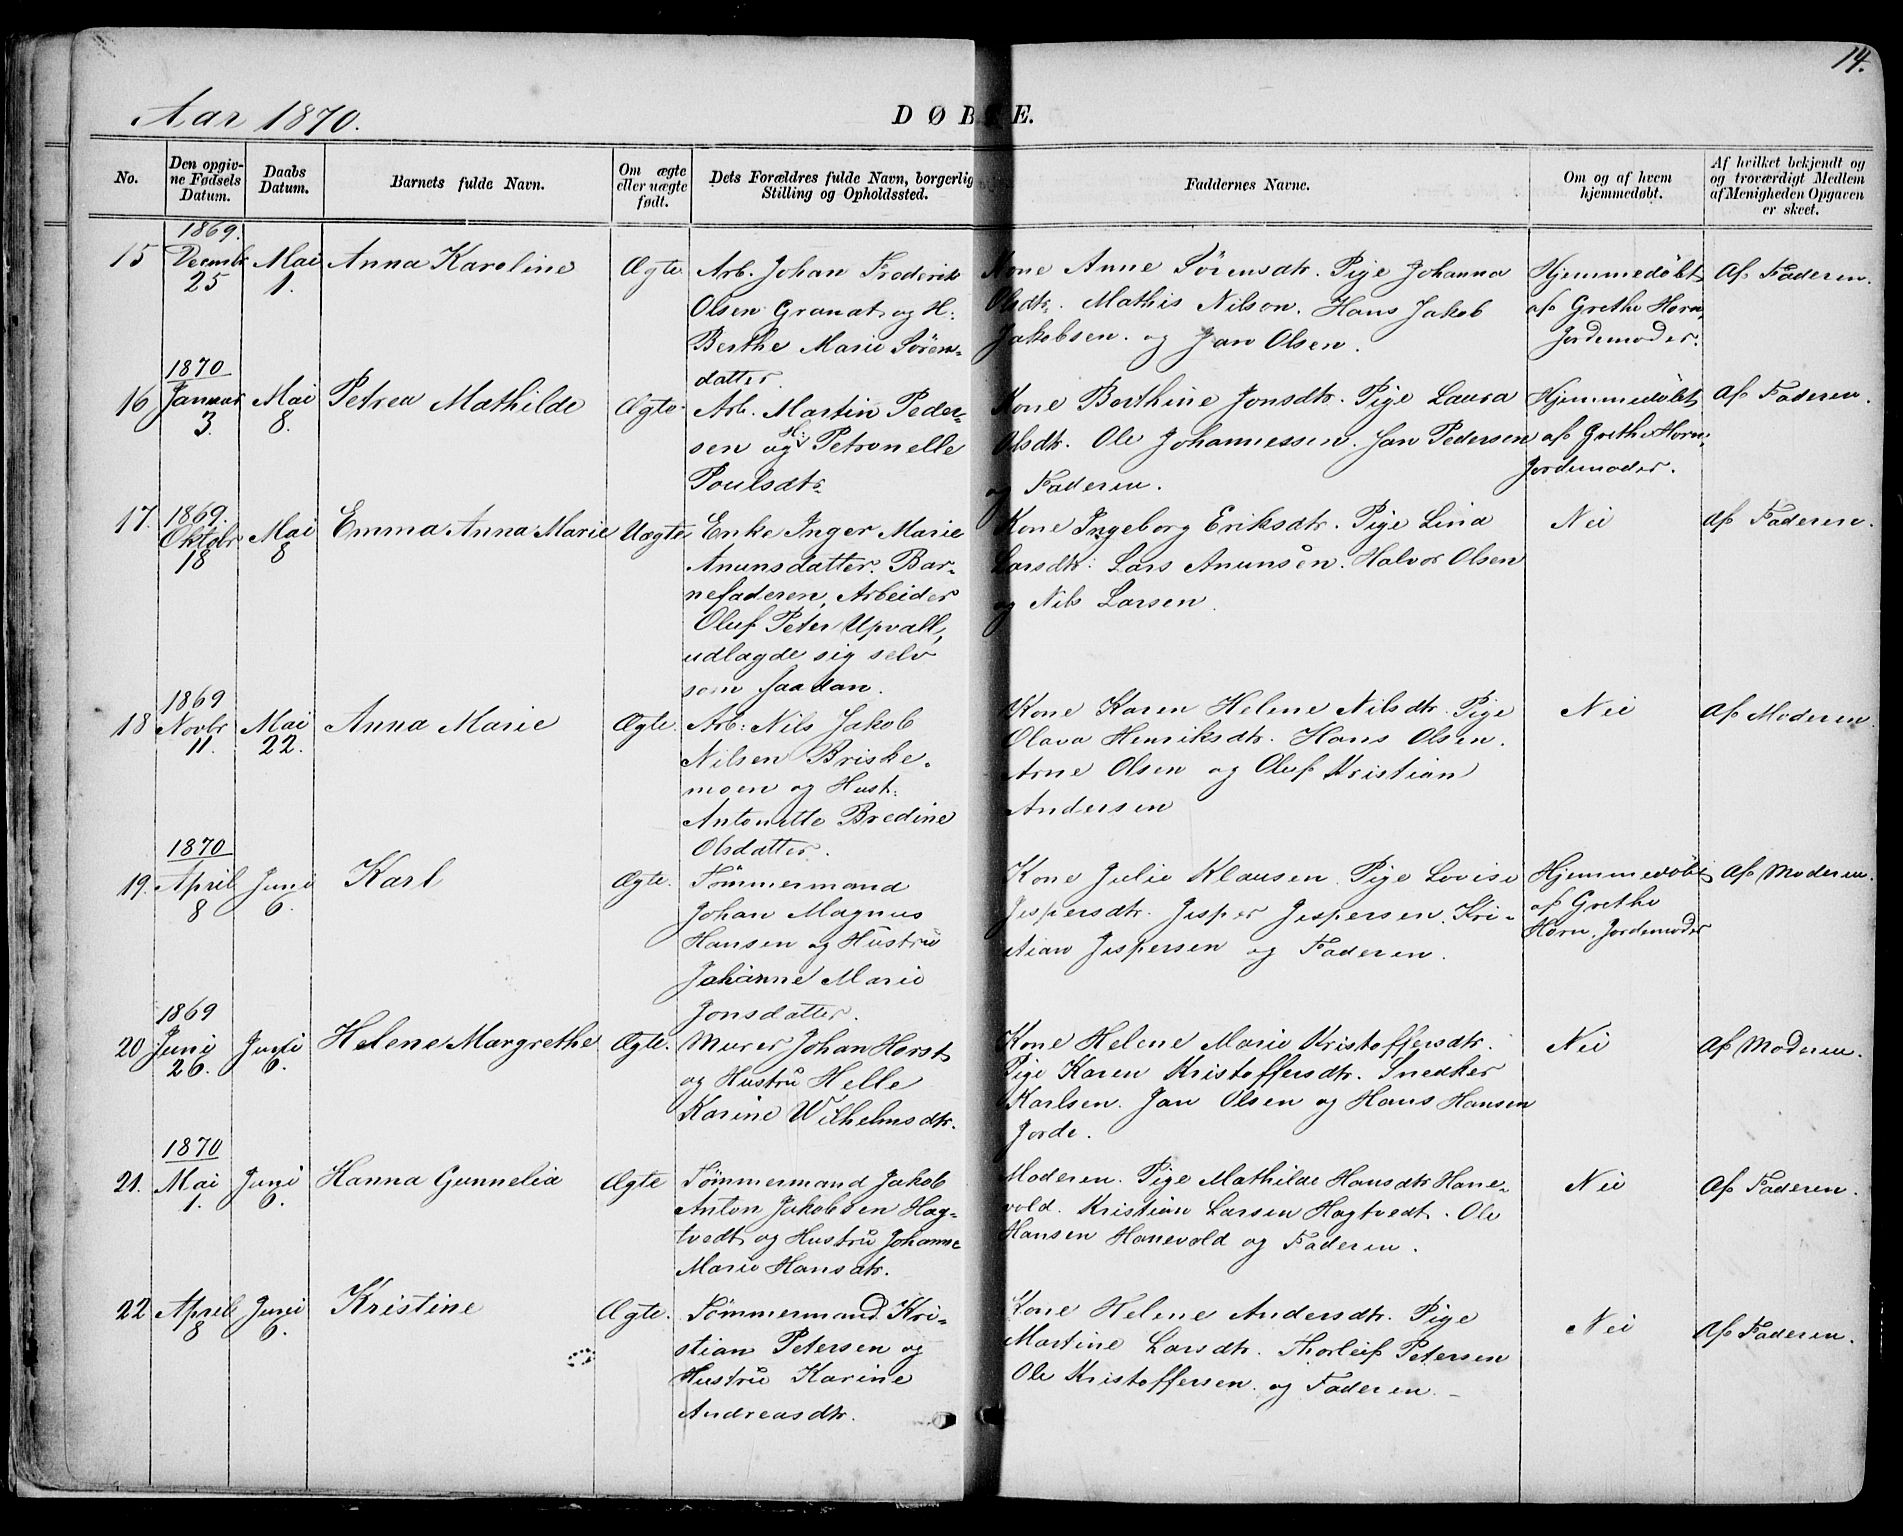 14.
Aar 1870.
DØBTE.
No.
Den opgiv-
ne Fødsels
Datum.
Daabs
Datum.
Barnets fulde Navn.
Om ægte
eller uægte
født.
Dets Forældres fulde Navn, borgerlig
Stilling og Opholdssted.
Faddernes Navne.
Om og af hvem
hjemmedøbt.
Af hvilket bekjendt og
og troværdigt Medlem
af Menigheden Opgaven
er skeet.
15
1869.
Decembr
25
Mai
1.
Anna Karoline
Ægte
Arb. Johan Frederik
Olsen Granat og H:
Berthe Marie Sören-
datter.
Kone Anne Sörensdtr. Pige Johanna
Olsdtr. Mathis Nilson. Hans Jakob
Jakobsen. og Jan Olsen.
Hjemmedøbt
af Grethe Horn,
Jordemoder.
Af Faderen.
16
1870
Januar
3.
Mai
8.
Petrea Mathilde
Ægte
Arb. Martin Peder-
sen og H: Petronelle
Poulsdtr.
Kone Berthine Jonsdtr. Pige Laura
Olsdtr. Ole Johannessen. Jan Pedersen
og Faderen.
Hjemmedøbt
af Grethe Horn,
Jordemoder.
Af Faderen.
17.
1869.
Oktobr
18
Mai
8
Emma Anna Marie
Uægte
Enke Inger Marie
Anunsdatter. Bar-
nefaderen, Arbeider
Oluf Peter Upvall,
udlagde sig selv
som saadan.
Kone Ingeborg Eriksdtr. Pige Lina
Larsdtr. Lars Anunsen. Halvor Olsen
og Nils Larsen.
Nei
Af Faderen.
18
1869
Novbr
11.
Mai
22.
Anna Marie
Ægte.
Arb: Nils Jakob
Nilsen Briske-
moen og Hust:
Antonette Bredine
Olsdatter.
Kone Karen Helene Nilsdtr. Pige
Olava Henriksdtr. Hans Olsen.
Arne Olsen og Oluf Kristian
Andersen
Nei
Af Moderen.
19.
1870
April
8
Juni
6.
Karl
Ægte.
Tömmermand
Johan Magnus
Hansen og Hustru
Johanne Marie
Jonsdatter.
Kone Julie Klausen. Pige Lovise
Jespersdtr. Jesper Jespersen. Kri-
stian Jespersen og Faderen.
Hjemmedøbt
af Grethe
Horn, Jordemoder
Af Moderen.
20
1869
Juni
26.
Juni
6.
Helene Margrethe
Ægte.
Murer Johan Horst
og Hustru Helle
Karine Wilhelmsdtr.
Kone Helene Marie Kristoffersdtr.
Pige Karen Kristoffersdtr. Snedker
Karlsen. Jan Olsen og Hans Hansen
Jorde.
Nei
Af Moderen.
21.
1870
Mai
1.
Juni
6.
Hanna Gunnelia
Ægte
Tömmermand Jakob
Anton Jakobsen Hag-
tvedt og Hustru Johanne
Marie Hansdtr.
Moderen. Pige Mathilde Hansdtr Hane-
vold. Kristian Larsen Hagtvedt. Ole
Hansen Hanevold og Faderen.
Nei
Af Faderen.
22
April
8
Juni
6.
Kristine
Ægte.
Tömmermand Kri-
stian Petersen og
Hustru Karine
Andreasdtr.
Kone Helene Andersdtr. Pige
Martine Larsdtr. Thorleif Petersen
Ole Kristoffersen. og Faderen.
Nei
Af Faderen.